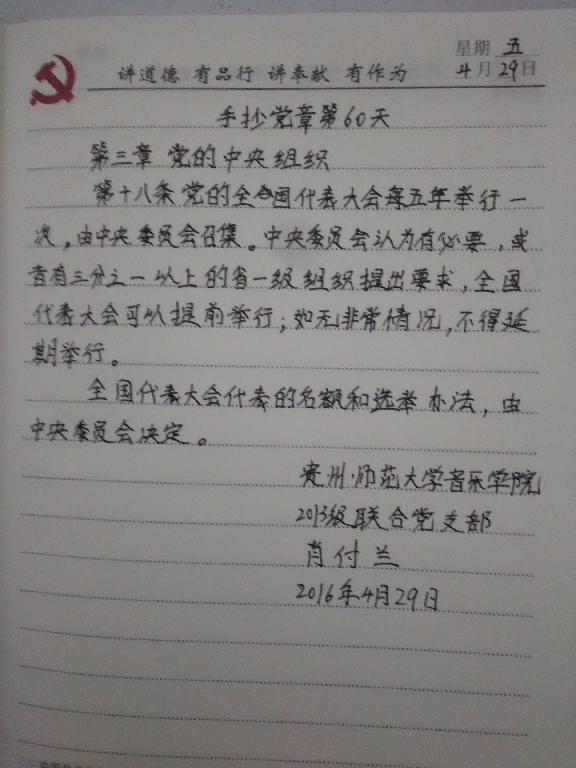 星期 五
讲道德 有品行 讲奉献 有作为
4月29日
手抄党章第60天
第三章 党的中央组织
第十八条 党的全国代表大会每五年举行一
次，由中央委员会召集。中央委员会认为有必要，或
者有三分之一以上的省一级组织提出要求，全国
代表大会可以提前举行；如无非常情况，不得延
期举行。
全国代表大会代表的名额和选举办法，由
中央委员会决定。
贵州师范大学音乐学院
2013级联合党支部
肖付兰
2016年4月29日